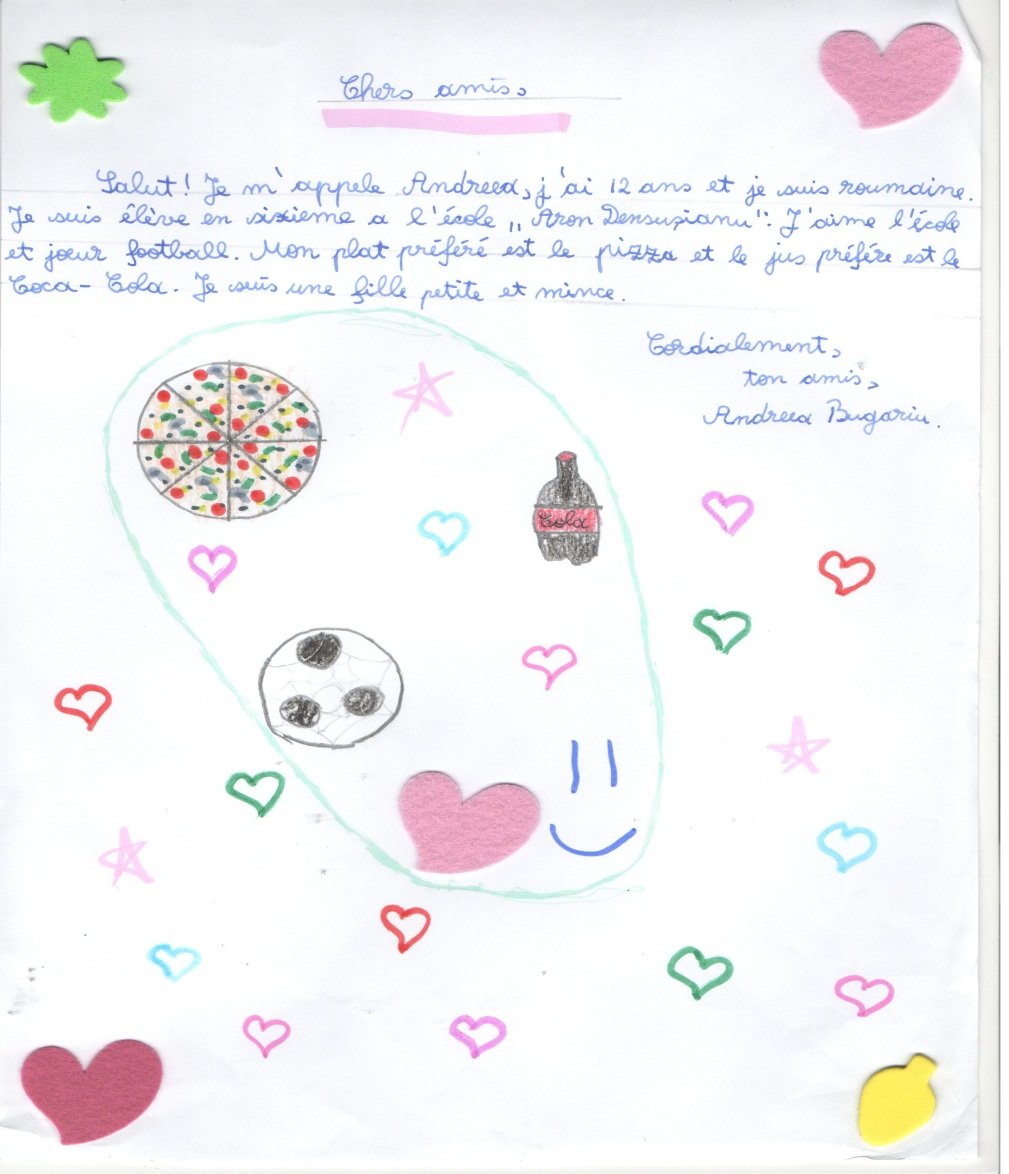 Chers amis,
Salut! Je m'appele Andreea, j'ai 12 ans et je suis roumaine.
Je suis élève en sixieme a l'école „Aron Densușianu": J'aime l'école
et joeur football. Mon plat préféré est le pizza et le jus préfére est le
Coca-Cola. Je suis une fille petite et mince.
Cordialement,
ton amis,
Andreea Bugariu.
Cola